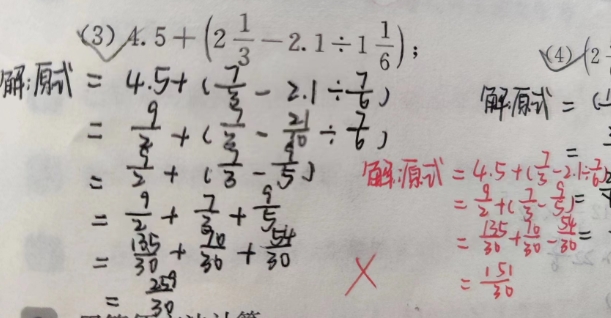 (3) 4.5 + (2 1/3 − 2.1 ÷ 1 1/6);
解:原式 = 4.5 + (7/3 − 2.1 ÷ 7/6)
= 9/2 + (7/3 − 21/10 ÷ 7/6)
= 9/2 + (7/3 − 9/5)
= 9/2 + 7/3 + 9/5
= 135/30 + 70/30 + 54/30
= 259/30
解:原式 = 4.5 + (7/3 − 2.1 ÷ 7/6)
= 9/2 + (7/3 − 9/5)
= 135/30 + 70/30 − 54/30
= 151/30
×
(4) (2
解:原式 = (
=
=
=